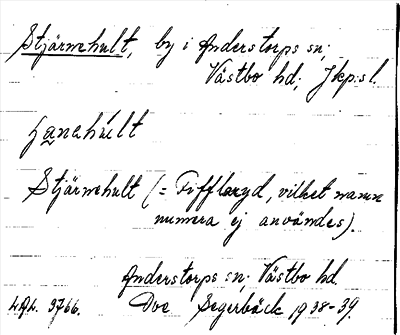 Stjärnehult, by i Anderstorps sn;
Västbo hd; Jkp:s l.
Stjärnehult (= Fiffloryd, vilket namn
numera ej användes).
Anderstorps sn; Västbo hd.
3766. Dve Segerbäck 1938-39